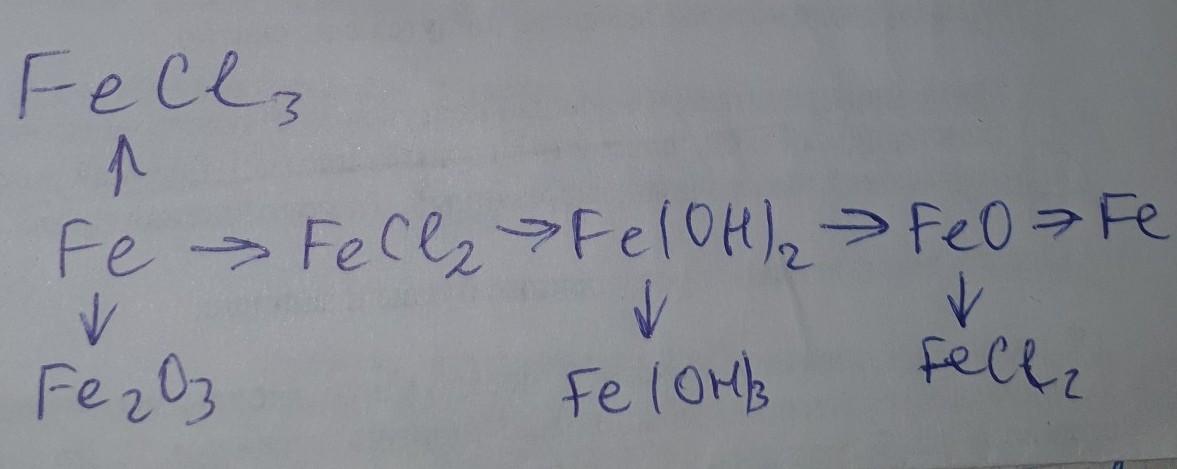 FeCl₃
↑
Fe → FeCl₂ → Fe(OH)₂ → FeO → Fe
↓ ↓ ↓
Fe₂O₃ Fe(OH)₃ FeCl₂